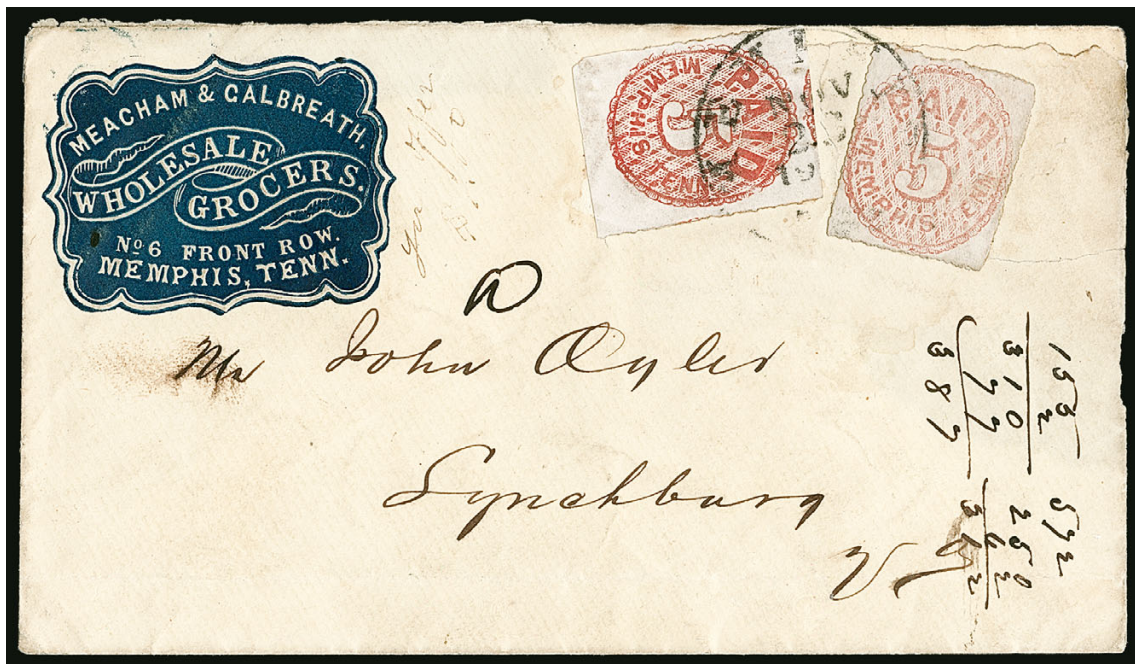 MEACHAM & GALBREATH,
WHOLESALE
GROCERS.
No 6 FRONT ROW.
MEMPHIS, TENN.
PAID
5
MEMPHIS TENN
PAID
5
MEMPHIS TENN
NOV
Mr John Oyler
Lynchburg
Va
153
310
77
387
250
62